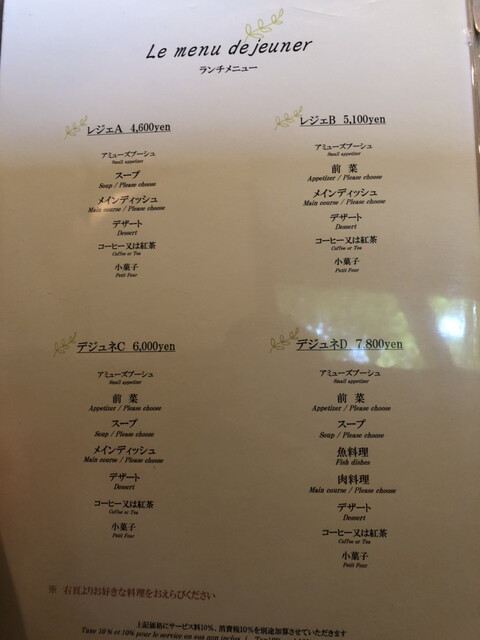 Le menu dejeuner
ランチメニュー
レジェA 4,600yen
アミューズブーシュ
Small appetizer
スープ
Soup / Please choose
メインディッシュ
Main course / Please choose
デザート
Dessert
コーヒー又は紅茶
Coffee or Tea
小菓子
Petit Four
レジェB 5,100yen
アミューズブーシュ
Small appetizer
前 菜
Appetizer / Please choose
メインディッシュ
Main course / Please choose
デザート
Dessert
コーヒー又は紅茶
Coffee or Tea
小菓子
Petit Four
デジュネC 6,000yen
アミューズブーシュ
Small appetizer
前 菜
Appetizer / Please choose
スープ
Soup / Please choose
メインディッシュ
Main course / Please choose
デザート
Dessert
コーヒー又は紅茶
Coffee or Tea
小菓子
Petit Four
デジュネD 7 800yen
アミューズブーシュ
Small appetizer
前 菜
Appetizer / Please choose
スープ
Soup / Please choose
魚料理
Fish dishes
肉料理
Main course / Please choose
デザート
Dessert
コーヒー又は紅茶
Coffee or Tea
小菓子
Petit Four
※ 右頁よりお好きな料理をおえらびください
上記価格にサービス料10%、消費税10%を別途加算させていただきます
Taxe 10 % et 10% pour le service en sus non inclus